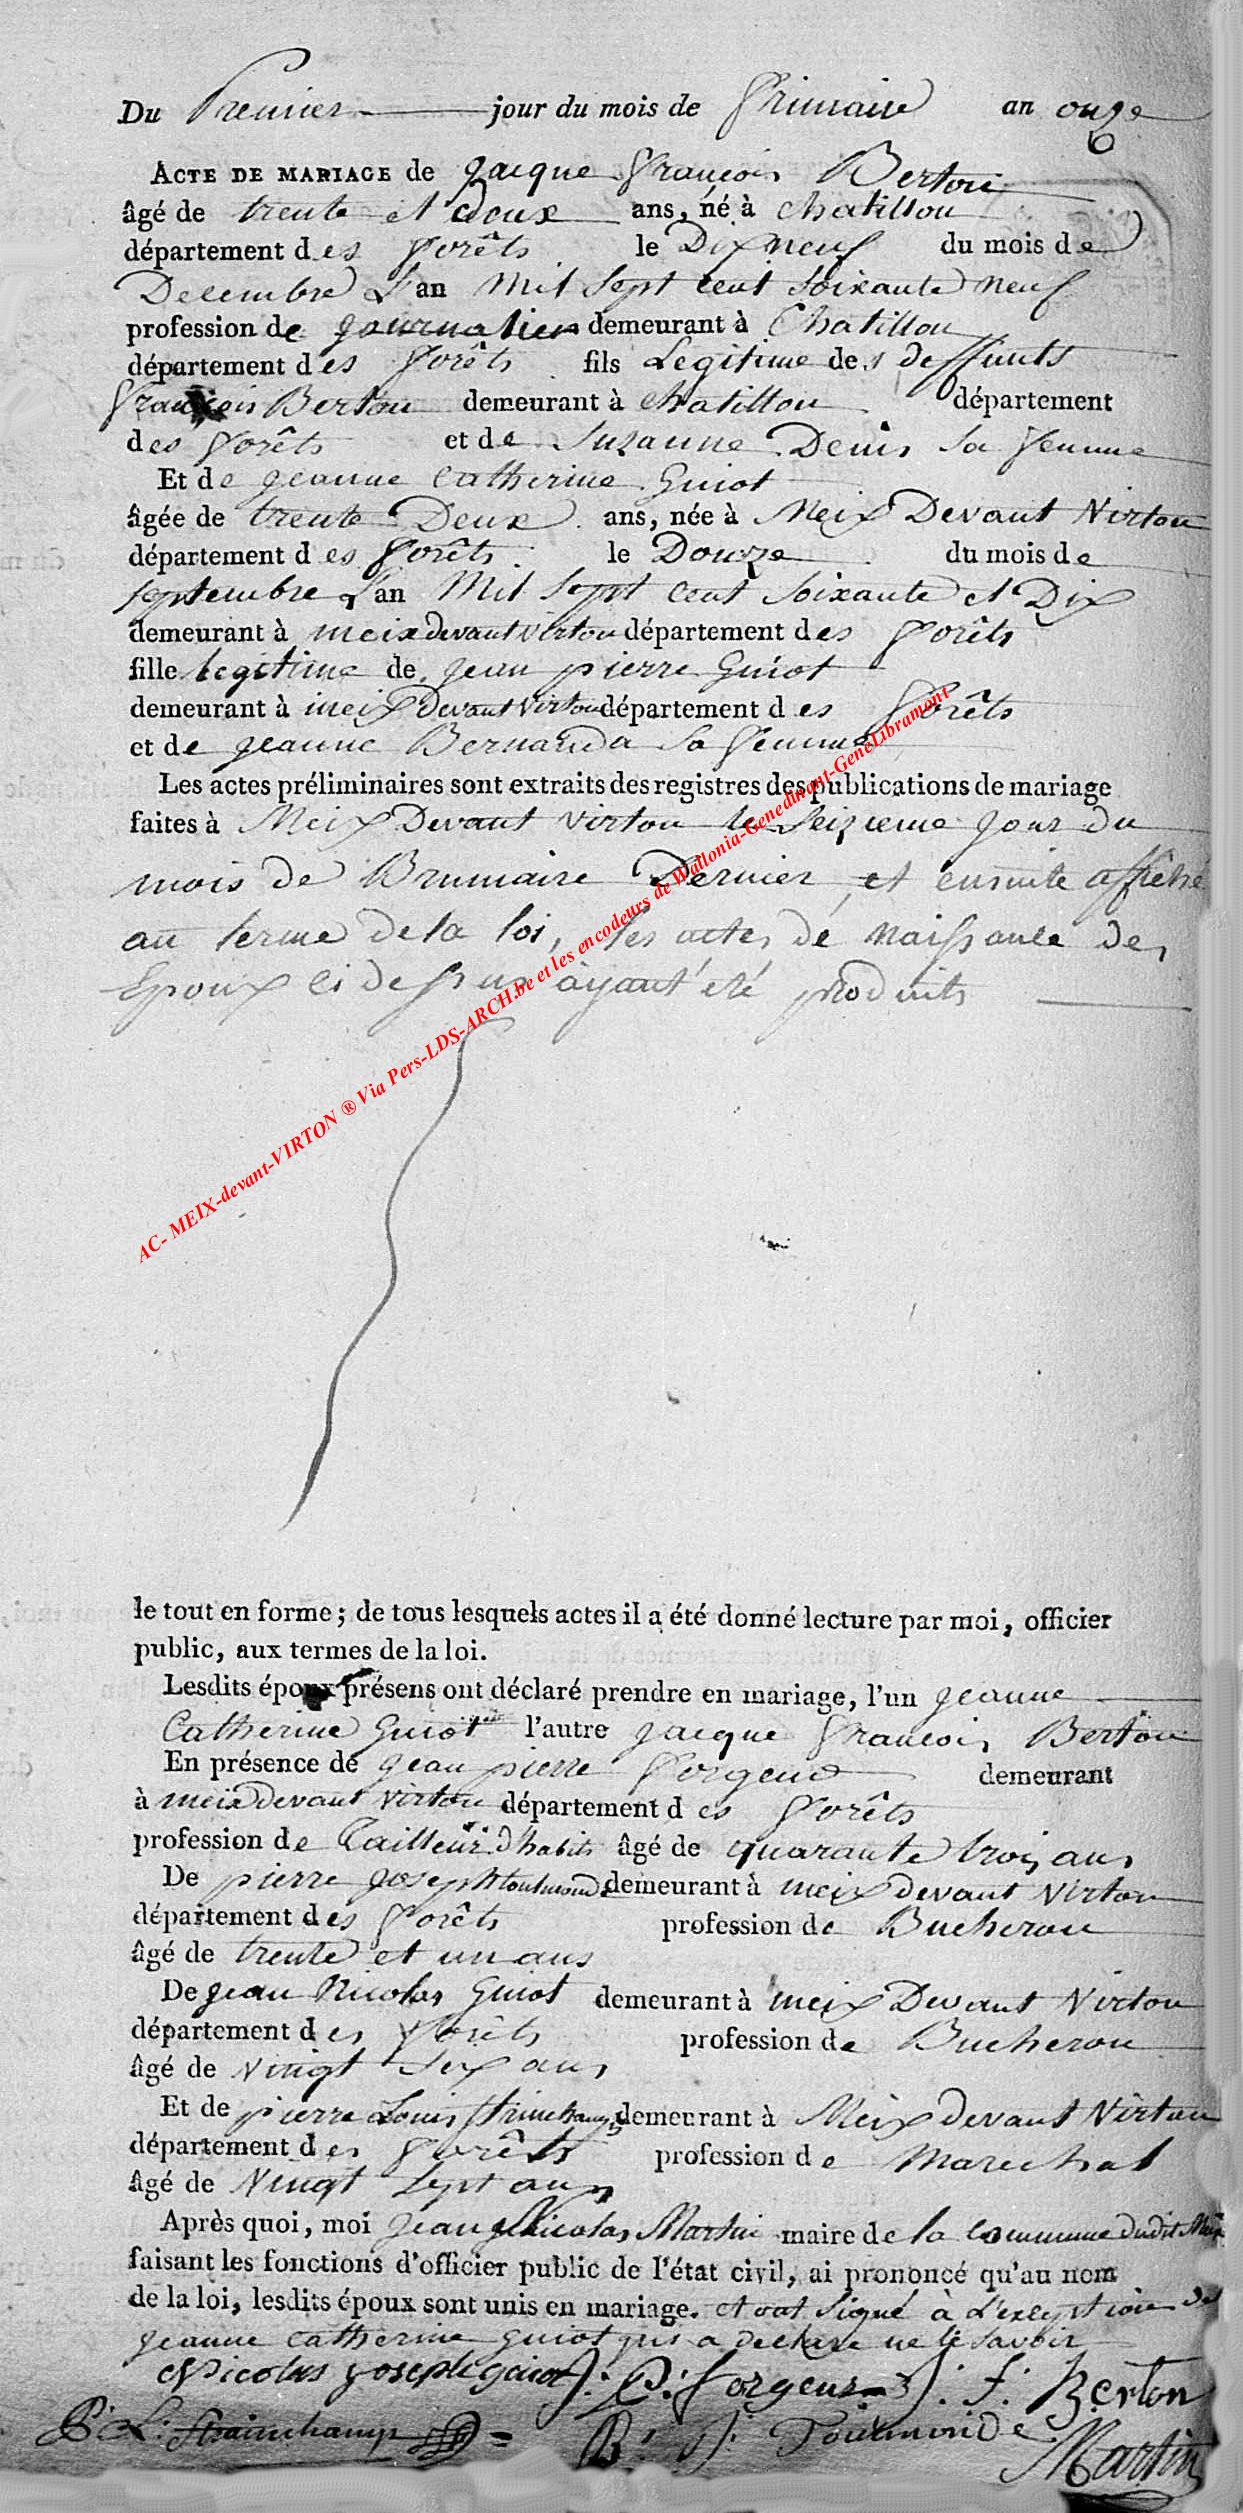 Du Premier jour du mois de Frimaire an onze
6
ACTE DE MARIAGE de Jacque François Berton
âgé de trente et deux ans, né à Chatillon
département des forêts le Dix neuf du mois de
Decembre L'an Mil Sept cent Soixante neuf
profession de journalier demeurant à Chatillon
département des forêts fils Legitime des deffunts
François Berton demeurant à Chatillon département
des forêts et de Suzanne Denis Sa femme
Et de jeanne Catherine Guiot
âgée de trente Deux ans, née à Meix Devant Virton
département des forêts le Douze du mois de
septembre L'an Mil Sept Cent Soixante et Dix
demeurant à meix devant virton département des forêts
fille legitime de jean pierre Guiot
demeurant à meix Devant Virton département des forêts
et de jeanne Bernarda Sa femme
Les actes préliminaires sont extraits des registres des publications de mariage
faites à Meix Devant virton le Seizieme jour du
mois de Brumaire Dernier et ensuite affiché
au terme de la loi, les actes de Naissance des
Epoux ci dessus ayant été produits
AC- MEIX-devant-VIRTON ® Via Pers-LDS-ARCH.be et les encodeurs de Wallonia-Genedinant-GeneLibramont
le tout en forme; de tous lesquels actes il a été donné lecture par moi, officier
public, aux termes de la loi.
Lesdits époux présens ont déclaré prendre en mariage, l'un jeanne
Catherine Guiot l'autre jacque François Berton
En présence de jean pierre Forgeur demeurant
à meix devant virton département des forêts
profession de Tailleur d'habits âgé de quarante trois ans
De pierre joseph toutmonde demeurant à meix devant Virton
département des forêts profession de Bucheron
âgé de trente et un ans
De jean Nicolas Guiot demeurant à meix Devant Virton
département des forêts profession de Bucheron
âgé de vingt Sex ans
Et de pierre Louis demeurant à Meix devant Virton
département des forêts profession de Marechal
âgé de Vingt Sept ans
Après quoi, moi jean Nicolas Martin maire de la Commune dudit Meix
faisant les fonctions d'officier public de l'état civil, ai prononcé qu'au nom
de la loi, lesdits époux sont unis en mariage. et ont Signé à L'exception de
jeanne Catherine guiot qui a declare ne le Savoir
Nicolas joseph guiot J: P: forgeur J: f: Berton
P: L: Strainchamp B: J: Toutmonde
Martin